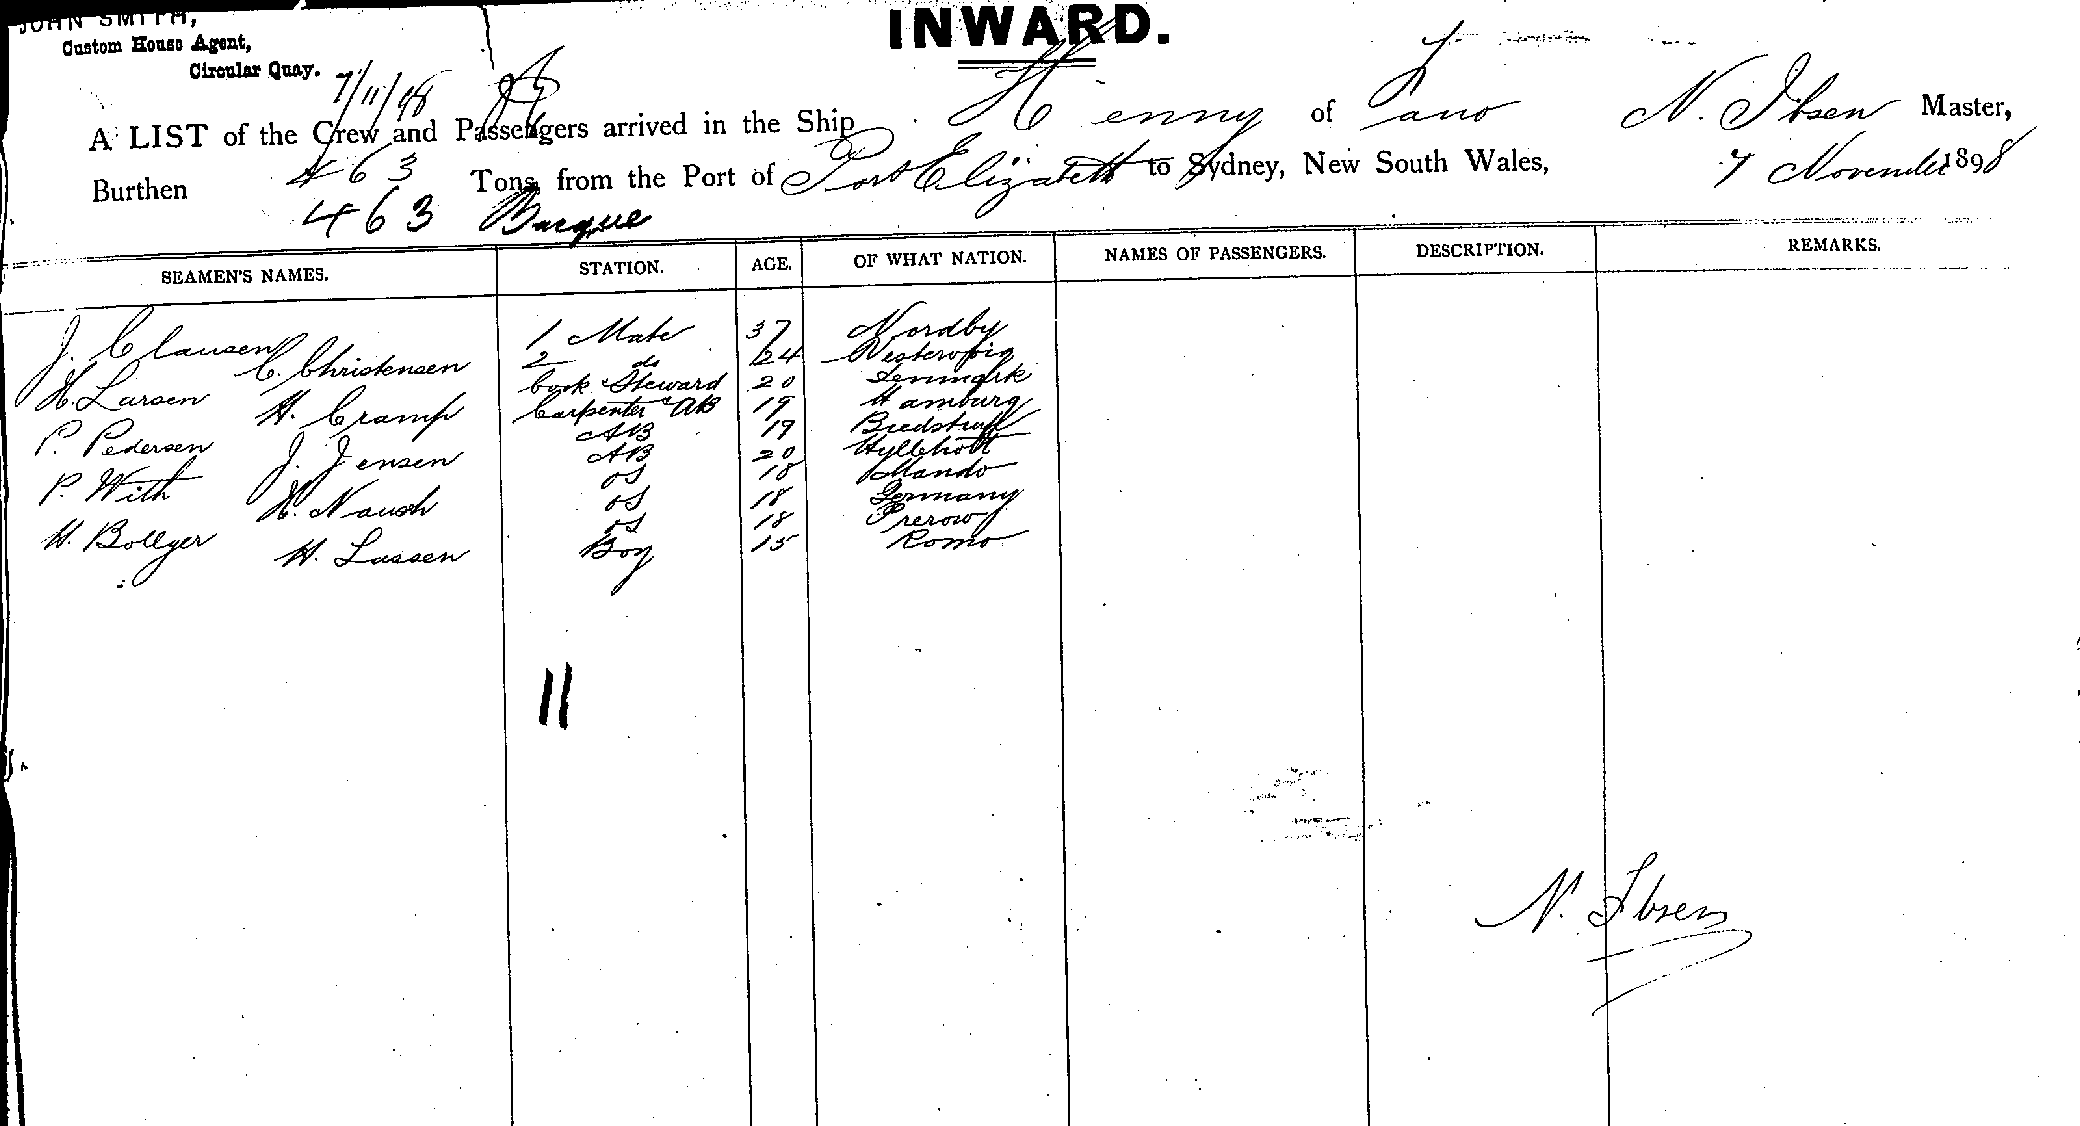 JOHN SMITH,
Custom House Agent,
Circular Quay.
INWARD.
7/11/98
A LIST of the Crew and Passengers arrived in the Ship Henny of Fano N. Ibsen Master,
Burthen 463 Tons from the Port of Port Elizabeth to Sydney, New South Wales, 7 November 1898
463 Barque
SEAMEN'S NAMES. STATION. AGE. OF WHAT NATION. NAMES OF PASSENGERS. DESCRIPTION. REMARKS.
J. Clausen 1 Mate 37 Nordby
C. Christensen 2 do 24
H. Larsen Cook & Steward 20 Denmark
H. Cramp Carpenter & AB 19 Hamburg
P. Pedersen AB 19
J. Jensen AB 20
P. With OS 18 Mando
H. Naush OS 18 Germany
H. Bollyer OS 18 Prerow
H. Lassen Boy 15 Romo
11
N. Ibsen